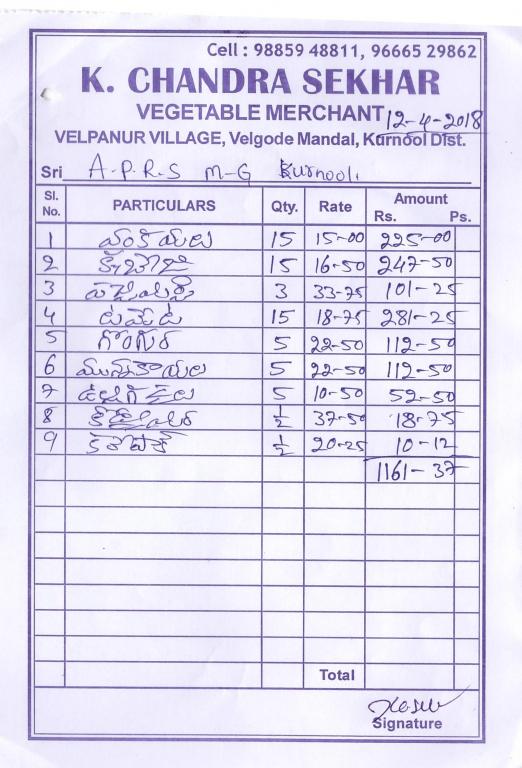 Cell : 98859 48811, 96665 29862
K. CHANDRA SEKHAR
VEGETABLE MERCHANT 12-4-2018
VELPANUR VILLAGE, Velgode Mandal, Kurnool Dist.
Sri A.P.R.S M-G Kurnool.
Sl. No. PARTICULARS Qty. Rate Amount Rs. Ps.
1 వంకాయలు 15 15-00 225-00
2 15 16-50 247-50
3 3 33-75 101-25
4 టమేట 15 18-75 281-25
5 గోంగూర 5 22-50 112-50
6 మునక్కాయలు 5 22-50 112-50
7 5 10-50 52-50
8 ½ 37-50 18-75
9 ½ 20-25 10-12
1161-37
Total
Signature